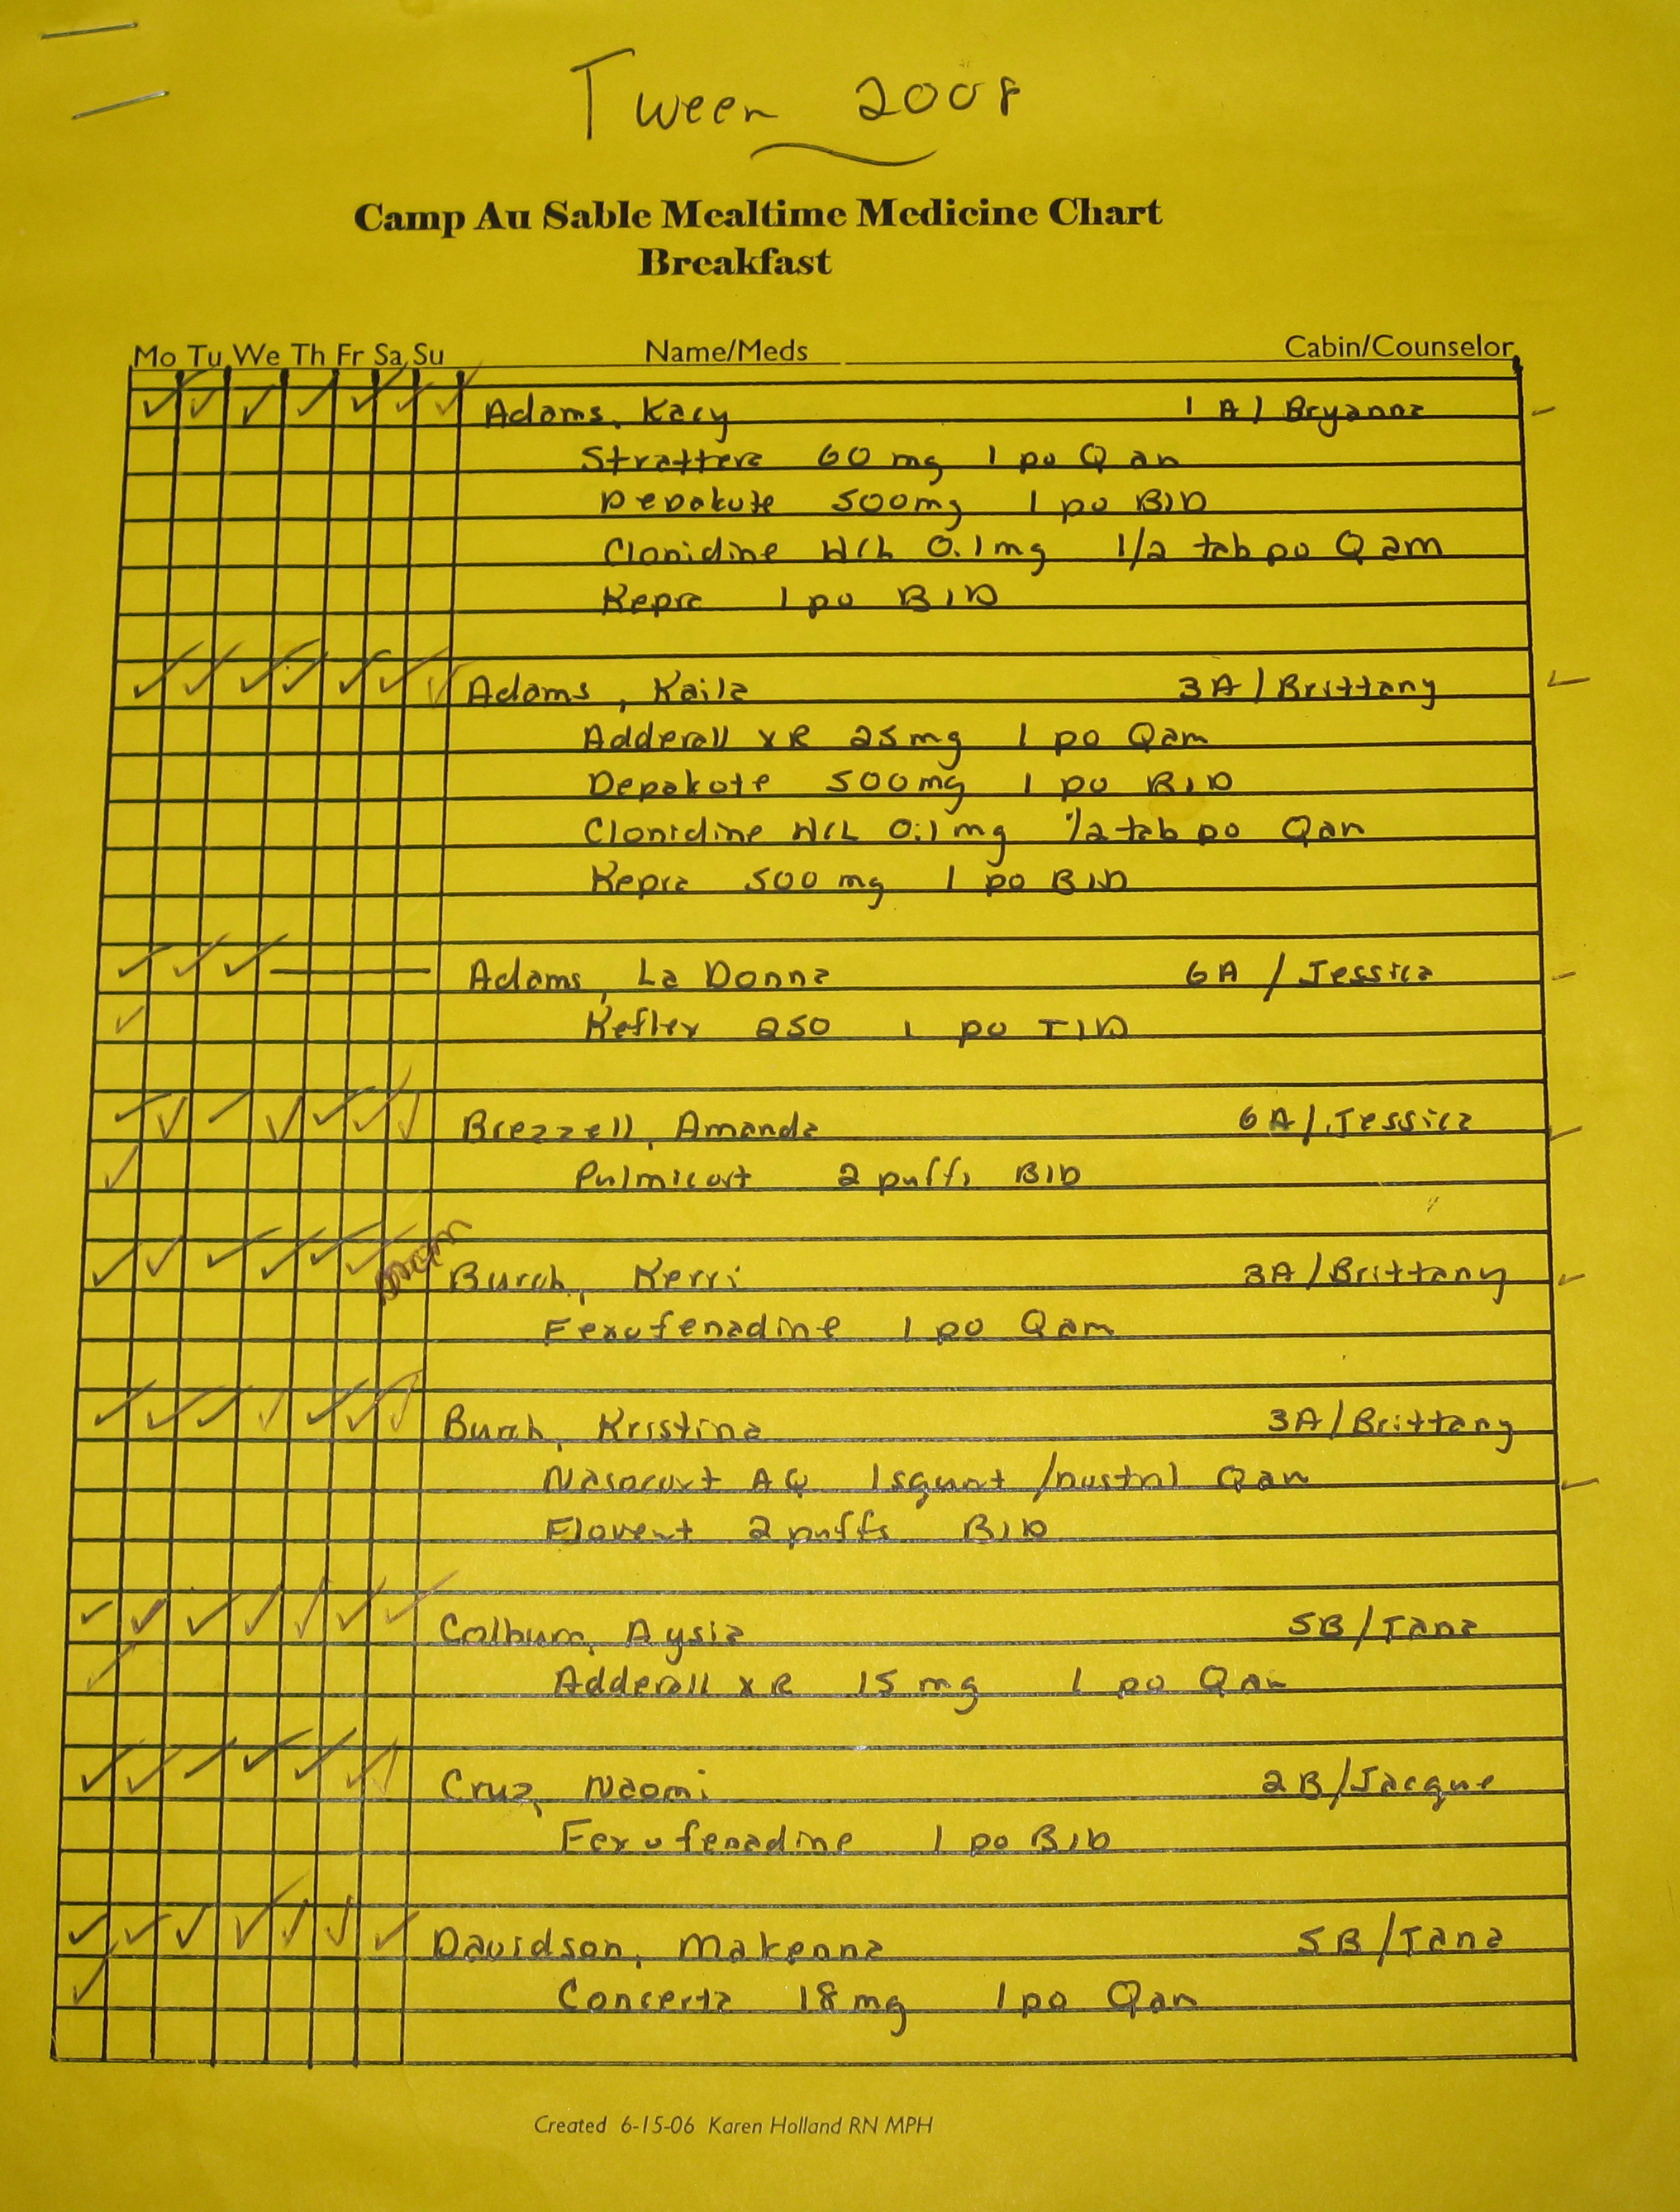 Tween 2008
Camp Au Sable Mealtime Medicine Chart
Breakfast
Mo Tu We Th Fr Sa Su Name/Meds Cabin/Counselor
Adams, Kacy 1A / Bryanna
Strattera 60 mg 1 po Q am
Depakote 500mg 1 po BID
Clonidine HCL 0.1mg 1/2 tab po Q am
Kepra 1 po BID
Adams, Kaila 3A / Brittany
Adderall XR 25mg 1 po Qam
Depakote 500mg 1 po BID
Clonidine HCL 0.1mg 1/2 tab po Qam
Kepra 500 mg 1 po BID
Adams, La Donna 6A / Jessica
Keflex 250 1 po TID
Brezzell, Amanda 6A / Jessica
Pulmicort 2 puffs BID
Burch, Kerri 3A / Brittany
Fexofenadine 1 po Qam
Burch, Kristina 3A / Brittany
Nasocort AQ 1 squirt /nostral Qam
Flovent 2 puffs BID
Colburn, Aysia 5B / Tana
Adderall XR 15 mg 1 po Qam
Cruz, Naomi 2B / Jacque
Fexofenadine 1 po BID
Davidson, Makenna 5B / Tana
Concerta 18mg 1 po Qam
Created 6-15-06 Karen Holland RN MPH